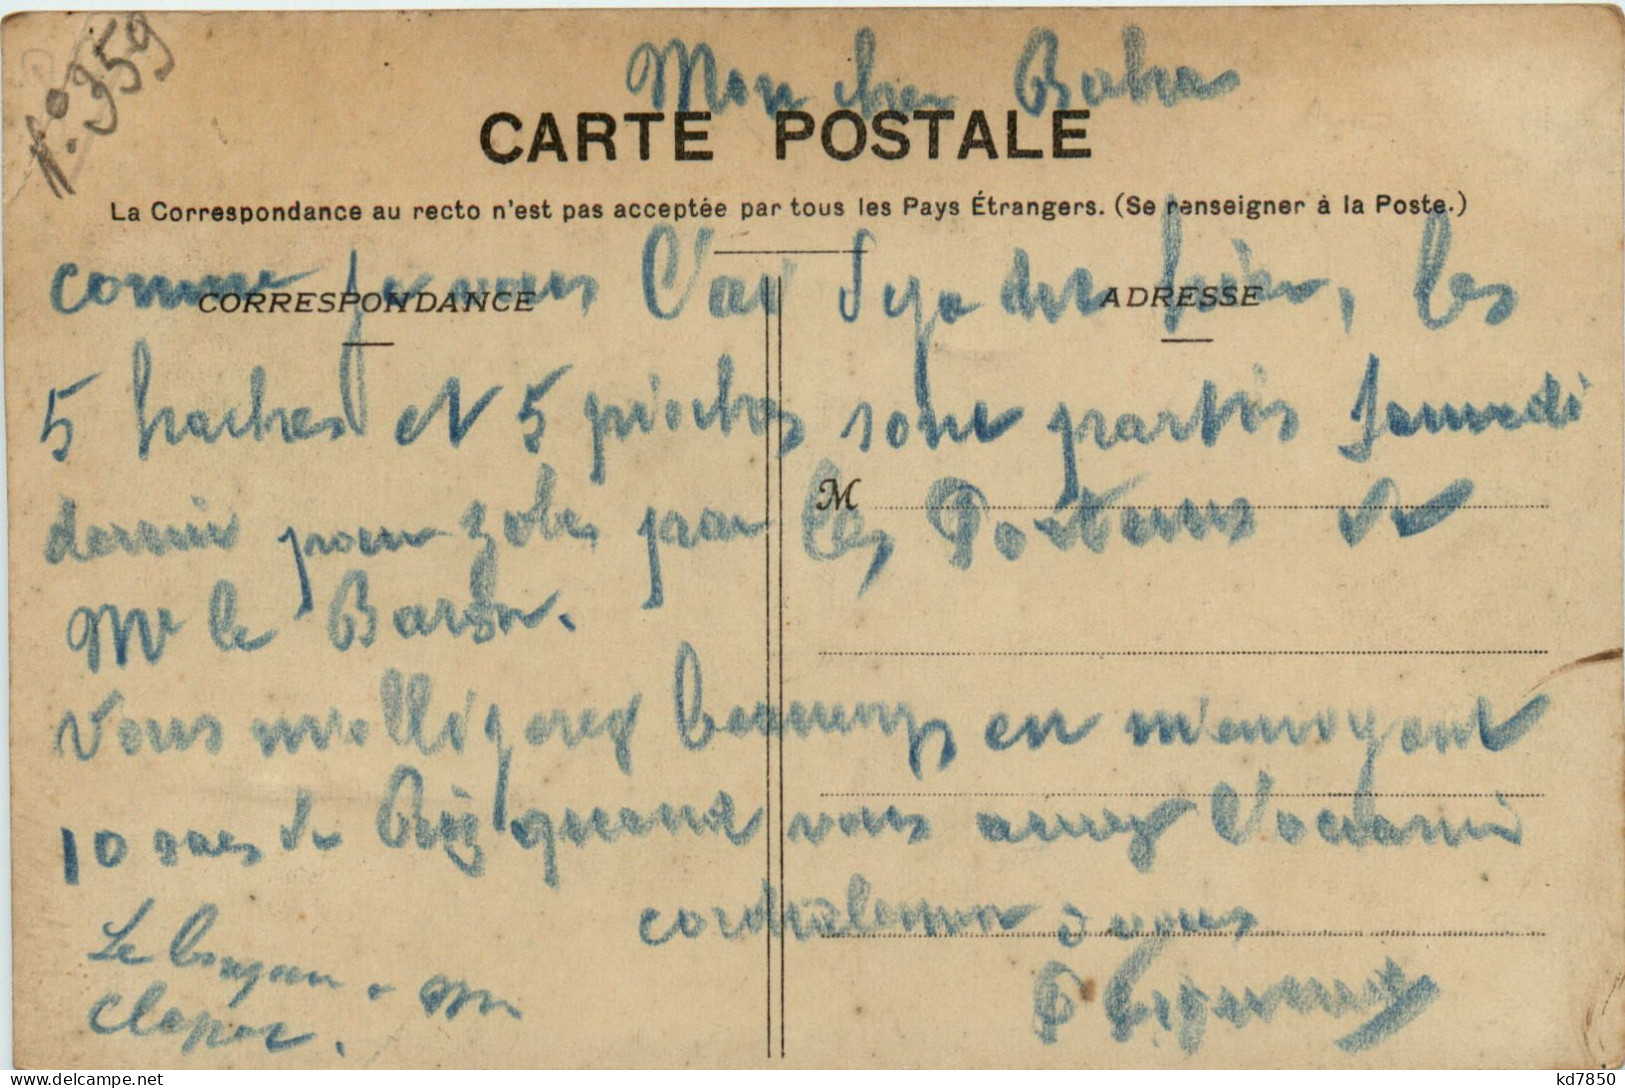 No. 959
Mon cher
CARTE POSTALE
La Correspondance au recto n'est pas acceptée par tous les Pays Étrangers. (Se renseigner à la Poste.)
comme je vous l'ai les
CORRESPONDANCE
ADRESSE
5 haches et 5 pioches sont partis Samedi
M
dernier pour par les Porteurs de
Mr le Baron.
Vous m'obligerez beaucoup en m'envoyant
10 sacs de Riz quand vous aurez l'occasion
cordialement à vous
Le
kd7850